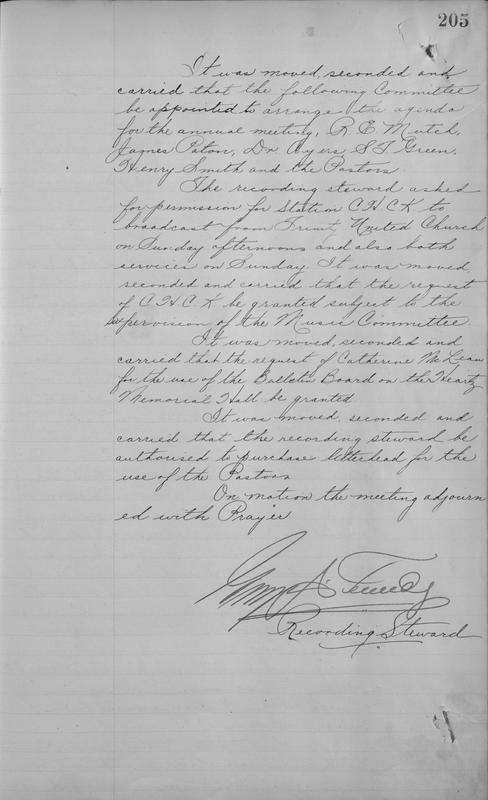 205
It was moved, seconded and
carried that the following Committee
be appointed to arrange the agenda
for the annual meeting, R E Mutch,
James Paton, Dr Ayers, S T Green,
Henry Smith and the Pastors
The recording steward asked
for permission for Station C H C K to
broadcast from Trinity United Church
on Sunday afternoons and also both
services on Sunday. It was moved,
seconded and carried that the request
of C. H. C. K. be granted subject to the
supervision of the Music Committee.
It was moved, seconded and
carried that the request of Catherine McLean
for the use of the Bulletin Board on the Heartz
Memorial Hall be granted
It was moved, seconded and
carried that the recording steward be
authorised to purchase letterhead for the
use of the Pastors
On motion the meeting adjourn
ed with Prayer
Recording Steward